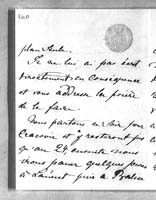 plan Aule.
Je ne lui ai pas écrit
directement en conséquence
et vous adresse la prière
de le faire.
Nous partons ce soir pour
Cracovie et y resterons jusqu'
au 24 ensuite nous
irons passer quelques jours
à Łańcut puis à